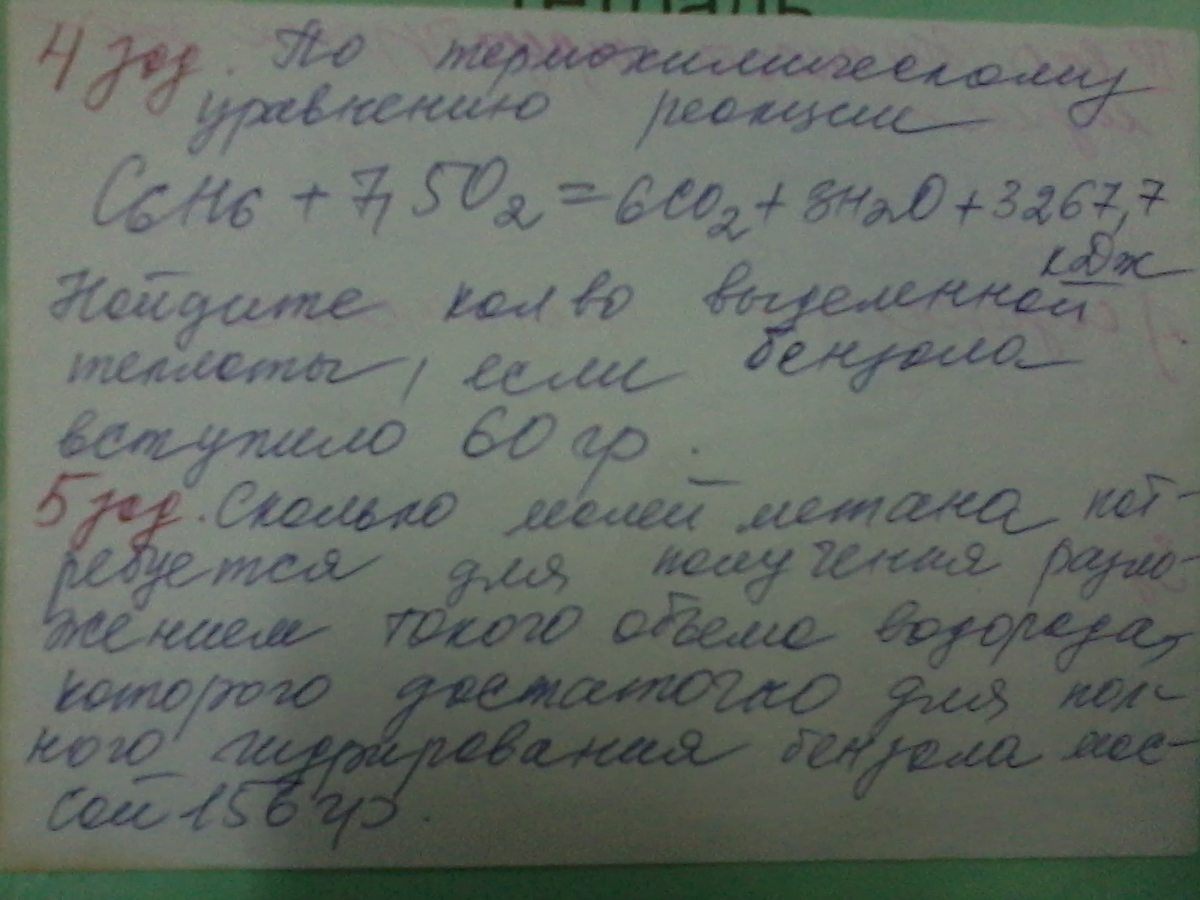 тетрадь
4 зад. По термохимическому
уравнению реакции
C₆H₆ + 7,5O₂ = 6CO₂ + 3H₂O + 3267,7
кДж
Найдите кол во выделенной
теплоты, если бензола
вступило 60 гр.
5 зад. Сколько молей метана пот-
ребуется для получения разло-
жением такого объема водорода,
которого достаточно для пол-
ного гидрирования бензола мас-
сой 156 гр.